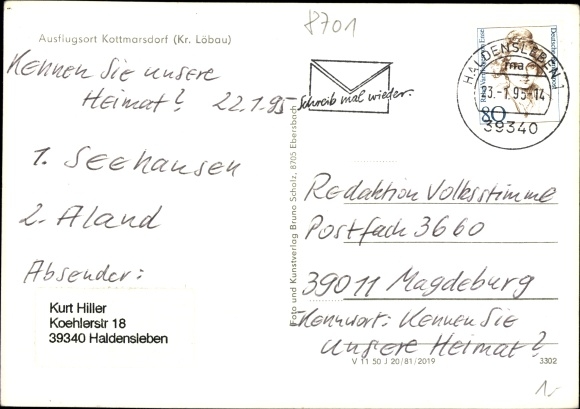 8701
Ausflugsort Kottmarsdorf (Kr. Löbau)
Kennen Sie unsere
Heimat? 22.1.95
Schreib mal wieder.
HALDENSLEBEN 1
23.-1.95-14
39340
Deutsche Bundespost
80
1. Seehausen
2. Aland
Absender:
Kurt Hiller
Koehlerstr 18
39340 Haldensleben
Foto und Kunstverlag Bruno Scholz, 8705 Ebersbach
Redaktion Volksstimme
Postfach 3660
39011 Magdeburg
Kennwort: Kennen Sie
unsere Heimat?
V 11 50 J 20/81/2019
3302